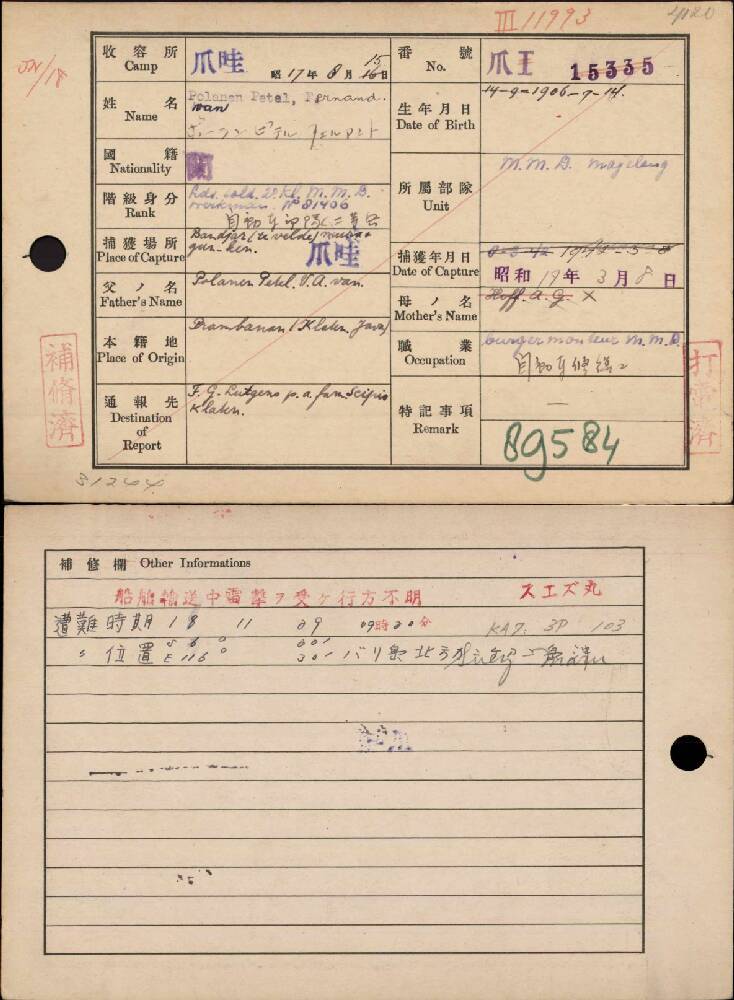 III 11993
収容所 Camp
爪哇
昭17年8月15日
番號 No.
爪 15335
姓名 Name
Polanen Petel, Fernand. van
生年月日 Date of Birth
14-9-1906-9-14.
國籍 Nationality
蘭
所屬部隊 Unit
M.M.D. magelang
階級身分 Rank
Lds. sold. 2e Kl. M.M.D.
werksman. No 81406
捕獲場所 Place of Capture
Bandjar (te velde)
爪哇
捕獲年月日 Date of Capture
昭和19年3月8日
父ノ名 Father's Name
Polanen Petel. V.A. van.
母ノ名 Mother's Name
Hoff. A. G. X
本籍地 Place of Origin
Prambanan (Klaten. Java)
職業 Occupation
burger monteur M.M.D.
通報先 Destination of Report
F. G. Lutgens p. a. fam. Scipio
Klaten.
特記事項 Remark
—
89584
補修濟
31244.
補修欄 Other Informations
船舶輸送中雷撃ヲ受ケ行方不明
スエズ丸
遭難時期 18 11 29 09時20分
〃 位置 S 6°
E 116°
バリ島北方